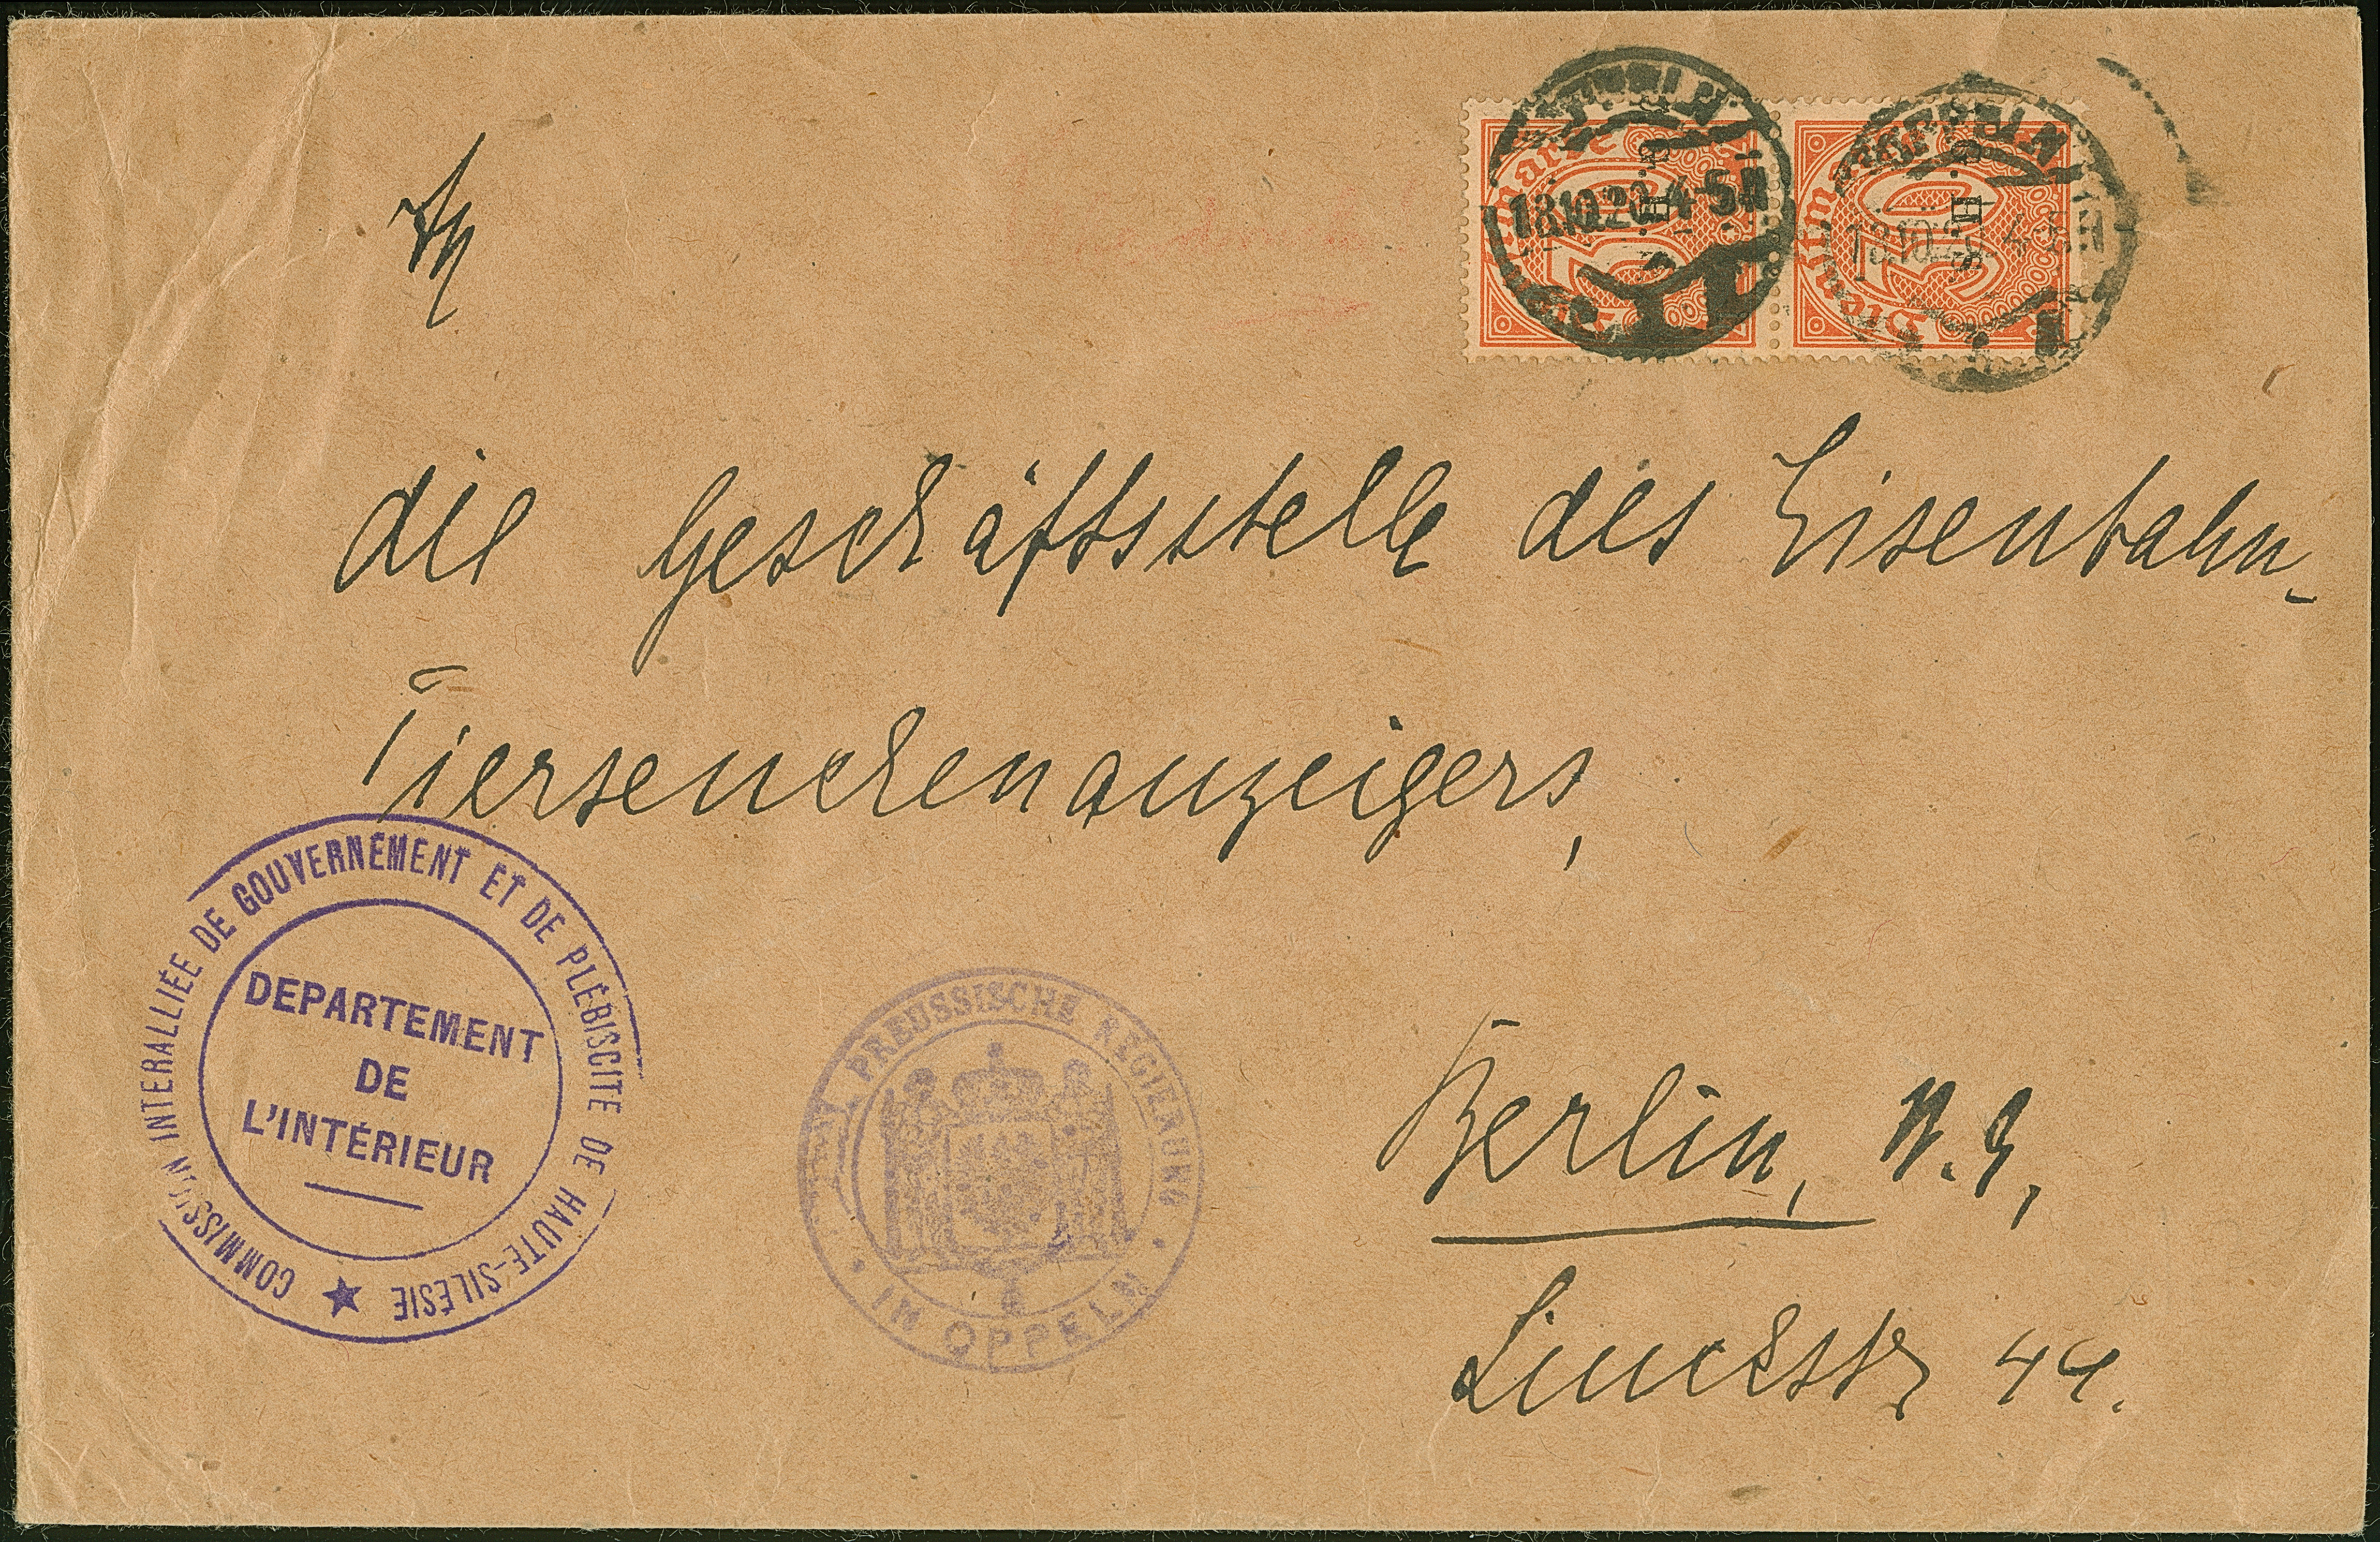 An
die Geschäftsstelle des Eisenbahn-
Tierseuchenanzeigers,
Berlin, N. 9,
44.
COMMISSION INTERALLIÉE DE GOUVERNEMENT ET DE PLÉBISCITE DE HAUTE-SILÉSIE
DEPARTEMENT
DE
L'INTÉRIEUR
PREUSSISCHE REGIERUNG
IN OPPELN
Dienstmarke
18.10.20. 4-5N
OPPELN
Dienstmarke
18.10.20. 4-5N